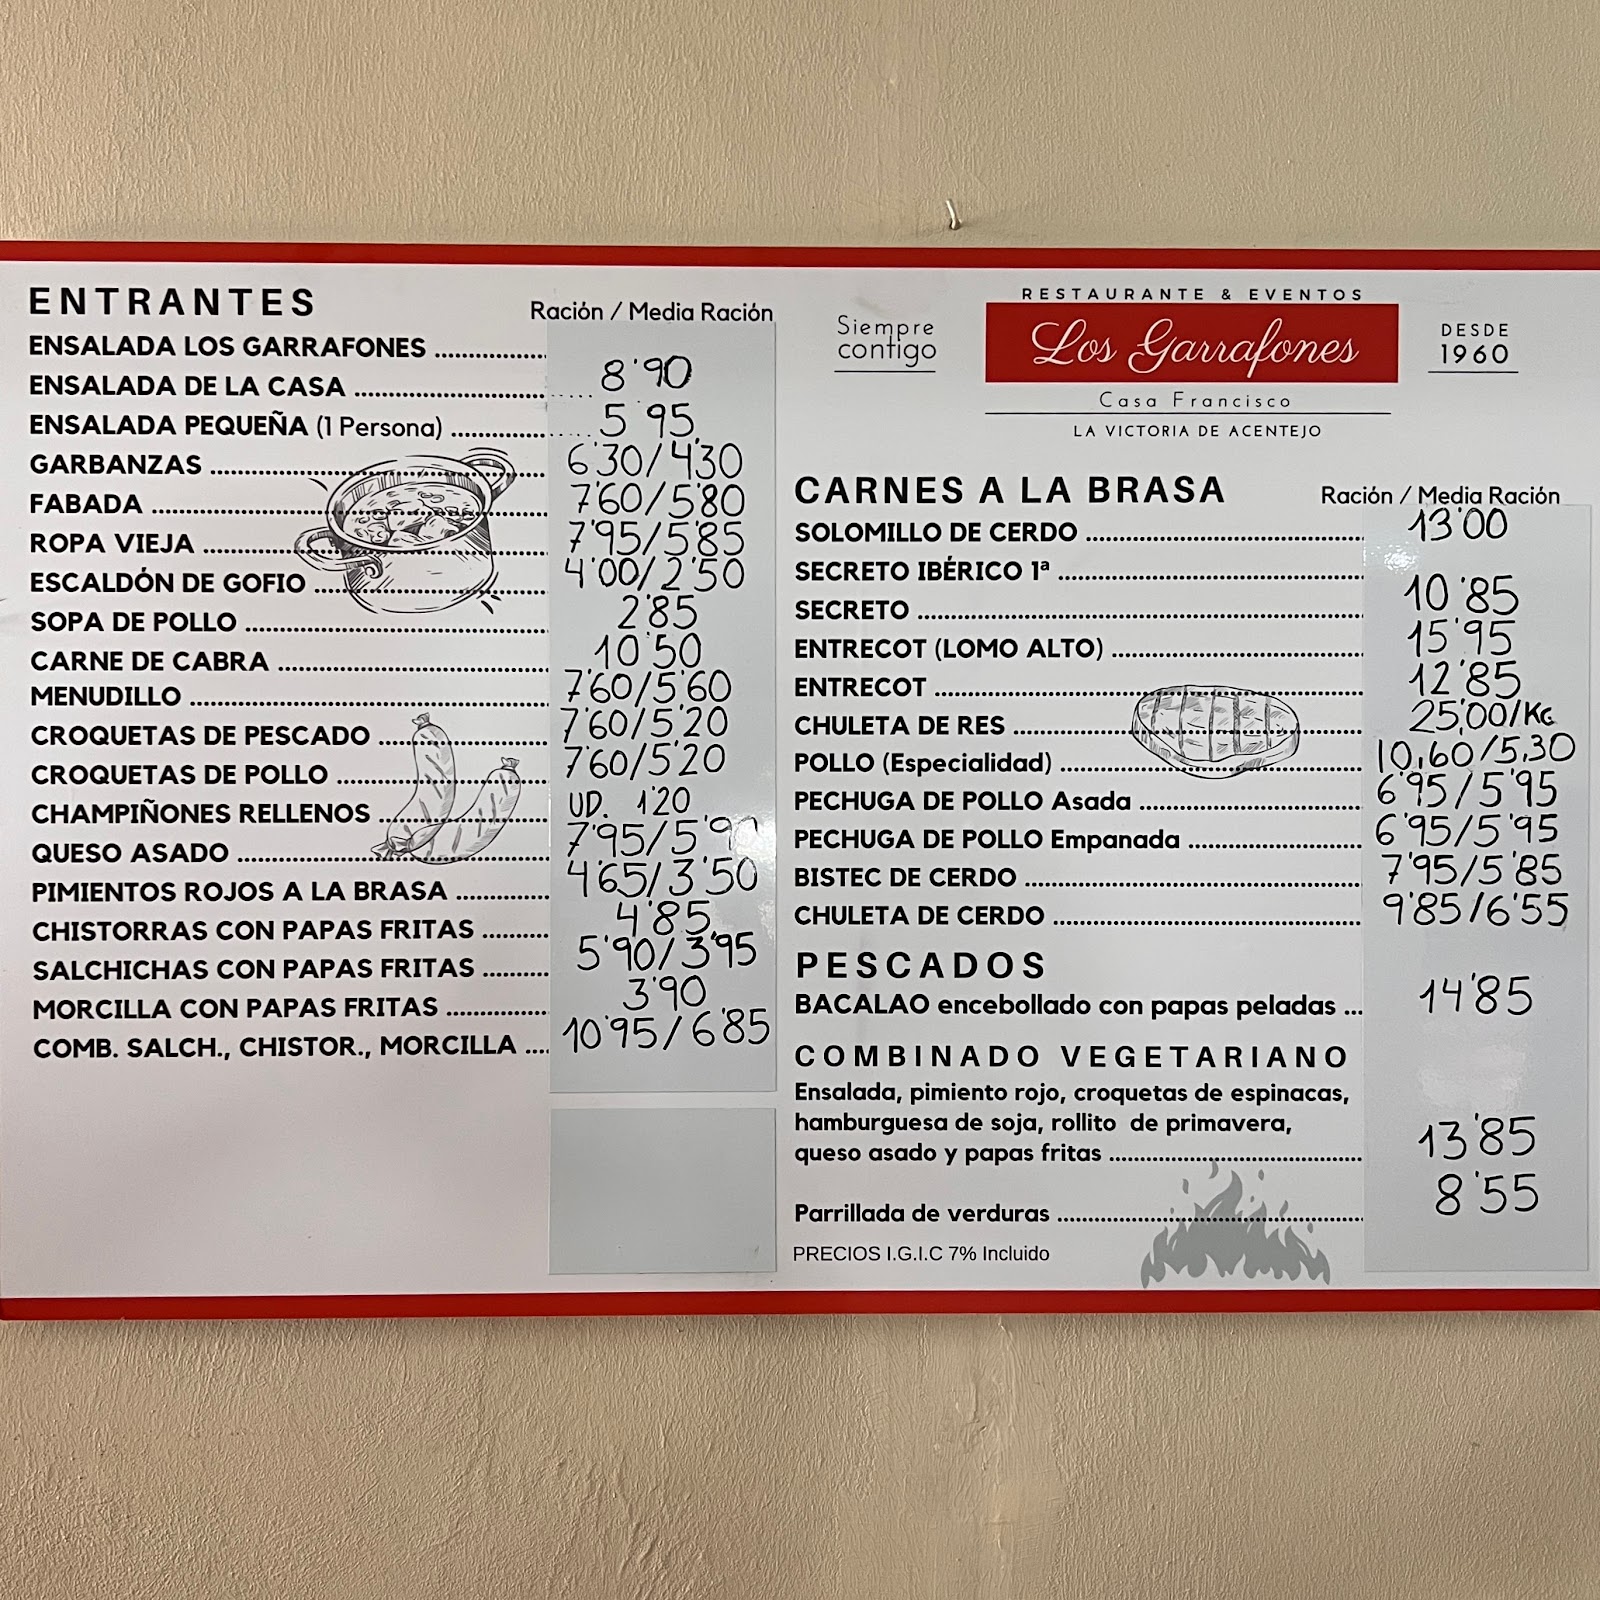 ENTRANTES
Ración / Media Ración
ENSALADA LOS GARRAFONES ....................
ENSALADA DE LA CASA .................... 8'90
ENSALADA PEQUEÑA (1 Persona) .................... 5'95
GARBANZAS .................... 6'30/4'30
FABADA .................... 7'60/5'80
ROPA VIEJA .................... 7'95/5'85
ESCALDÓN DE GOFIO .................... 4'00/2'50
SOPA DE POLLO .................... 2'85
CARNE DE CABRA .................... 10'50
MENUDILLO .................... 7'60/5'60
CROQUETAS DE PESCADO .................... 7'60/5'20
CROQUETAS DE POLLO .................... 7'60/5'20
CHAMPIÑONES RELLENOS .................... UD. 1'20
QUESO ASADO .................... 7'95/5'90
PIMIENTOS ROJOS A LA BRASA .................... 4'65/3'50
CHISTORRAS CON PAPAS FRITAS .................... 4'85
SALCHICHAS CON PAPAS FRITAS .................... 5'90/3'95
MORCILLA CON PAPAS FRITAS .................... 3'90
COMB. SALCH., CHISTOR., MORCILLA .... 10'95/6'85
RESTAURANTE & EVENTOS
Siempre contigo
Los Garrafones
DESDE 1960
Casa Francisco
LA VICTORIA DE ACENTEJO
CARNES A LA BRASA
Ración / Media Ración
SOLOMILLO DE CERDO .................... 13'00
SECRETO IBÉRICO 1ª ....................
SECRETO .................... 10'85
ENTRECOT (LOMO ALTO) .................... 15'95
ENTRECOT .................... 12'85
CHULETA DE RES .................... 25'00/KG
POLLO (Especialidad) .................... 10,60/5,30
PECHUGA DE POLLO Asada .................... 6'95/5'95
PECHUGA DE POLLO Empanada .................... 6'95/5'95
BISTEC DE CERDO .................... 7'95/5'85
CHULETA DE CERDO .................... 9'85/6'55
PESCADOS
BACALAO encebollado con papas peladas ... 14'85
COMBINADO VEGETARIANO
Ensalada, pimiento rojo, croquetas de espinacas,
hamburguesa de soja, rollito de primavera,
queso asado y papas fritas .................... 13'85
Parrillada de verduras .................... 8'55
PRECIOS I.G.I.C 7% Incluido